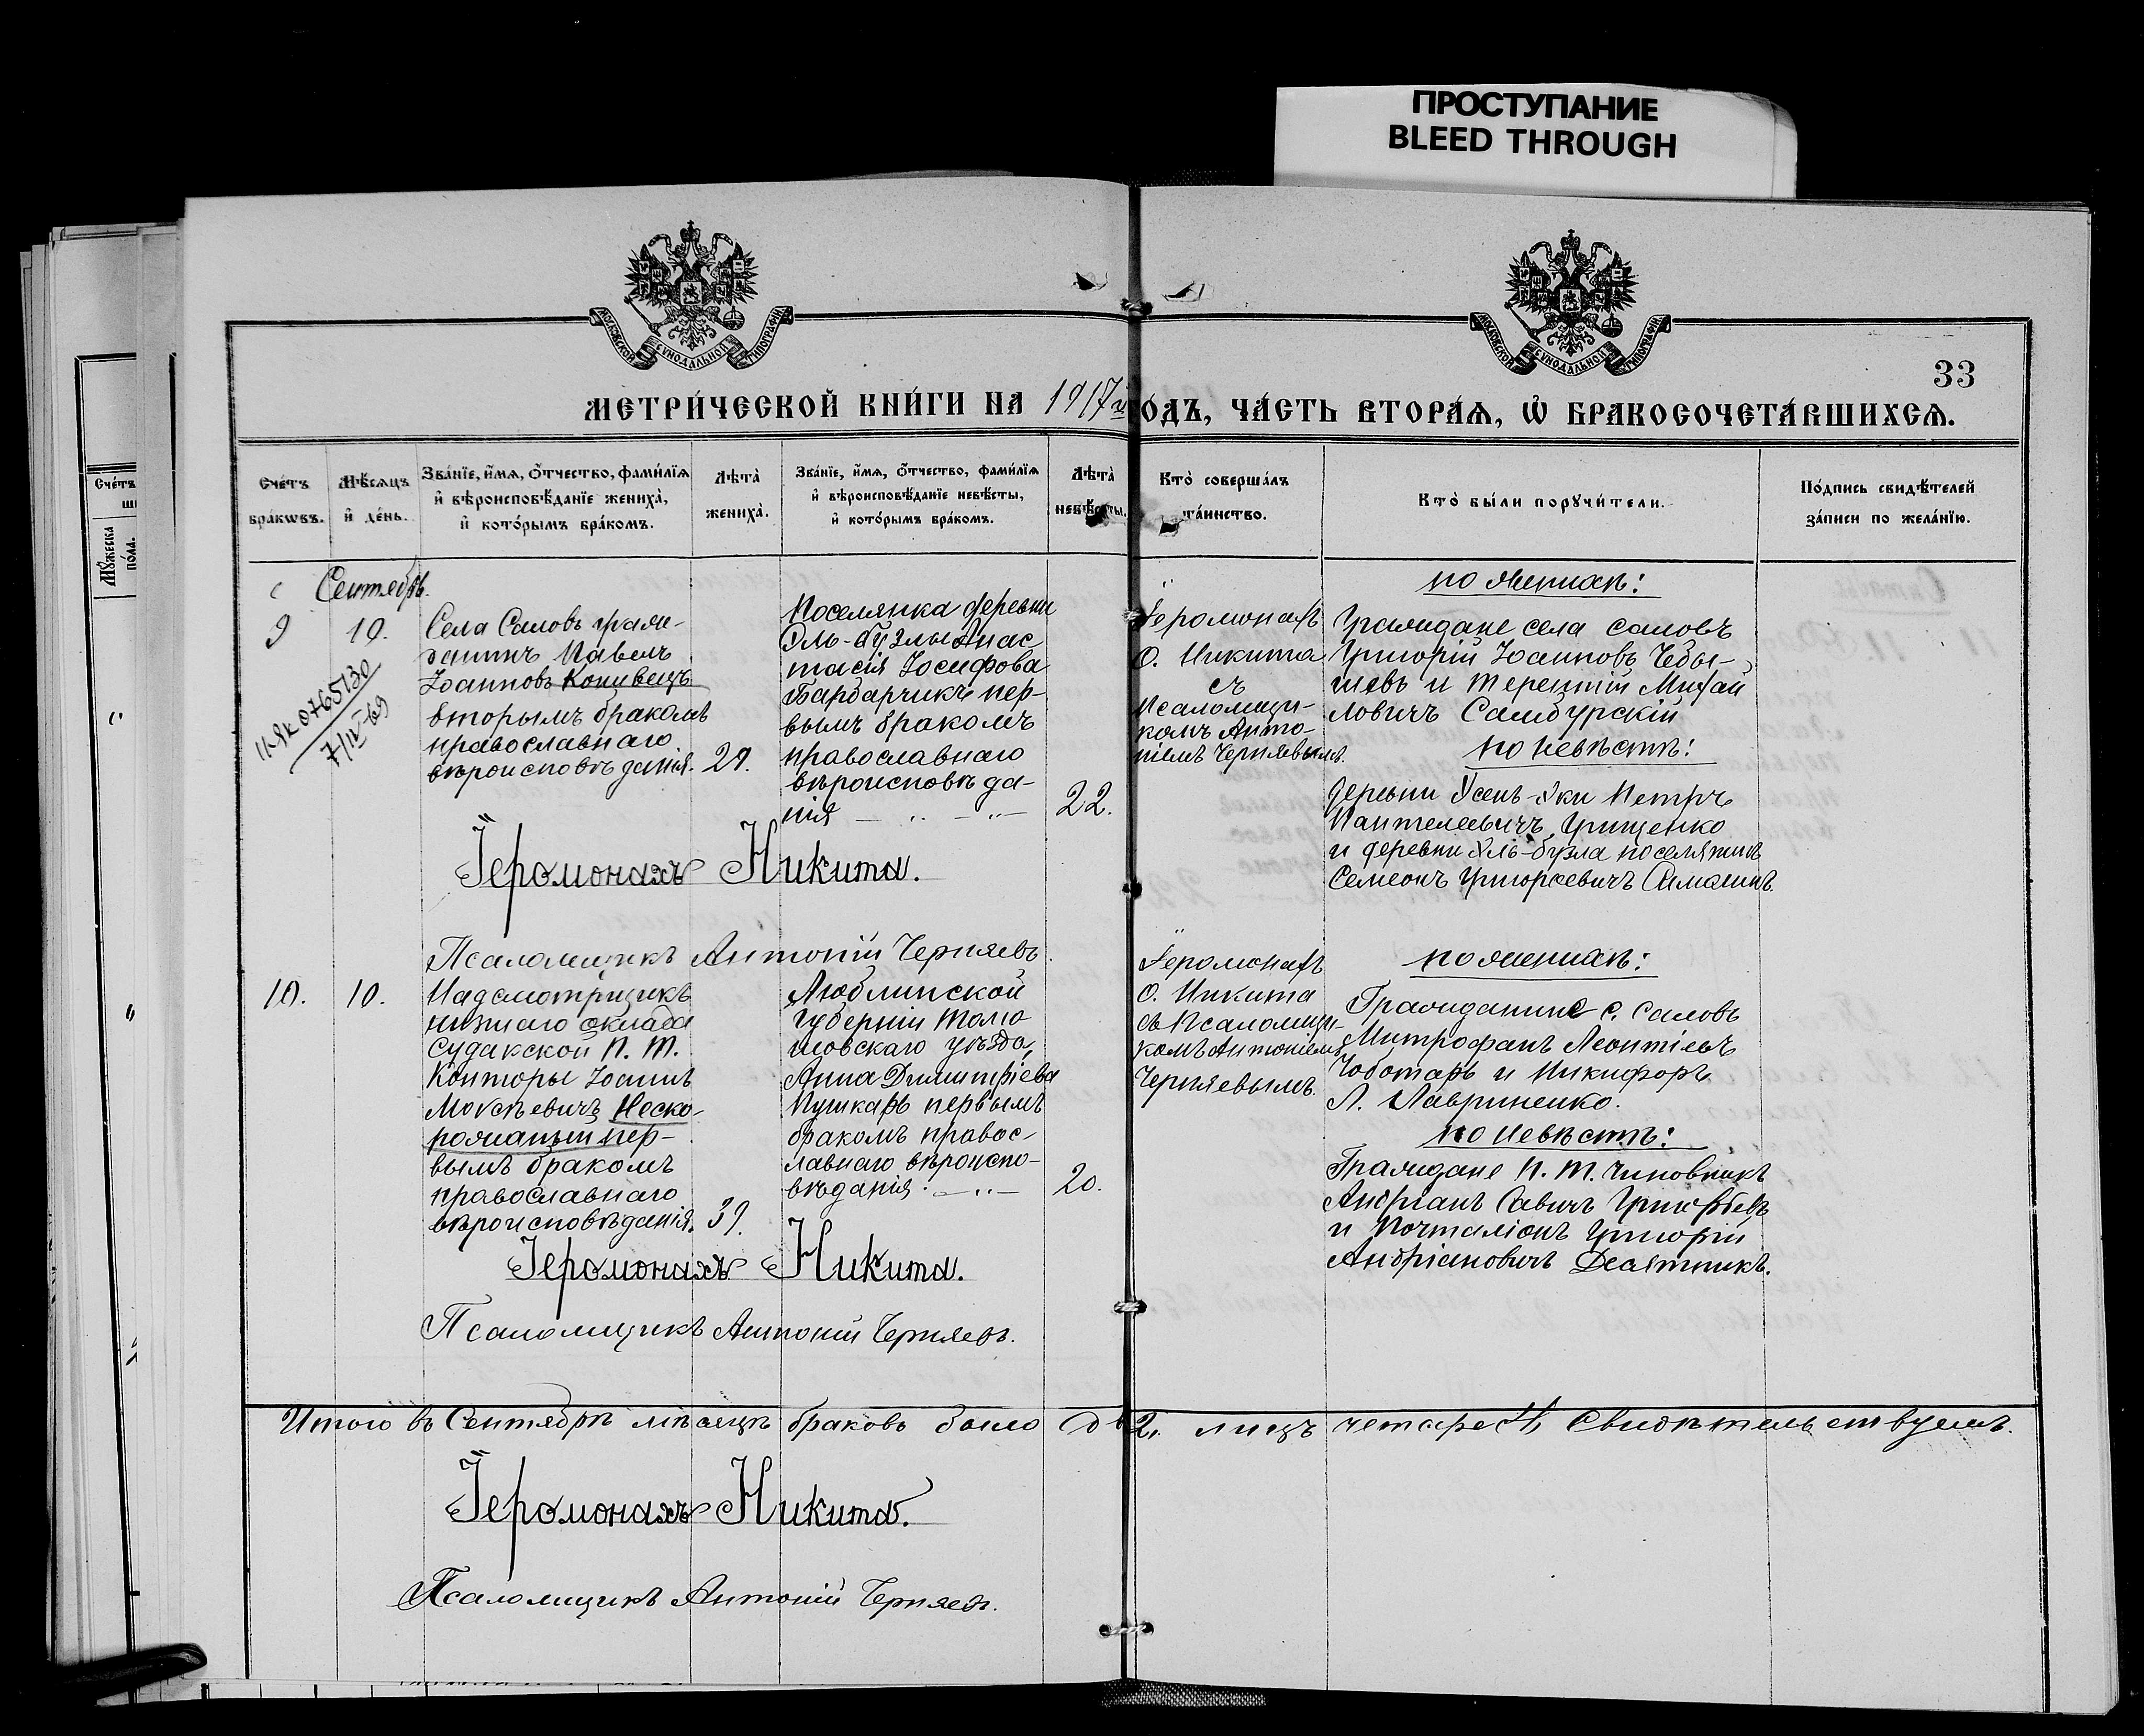 ПРОСТУПАНИЕ
BLEED THROUGH
МОСКОВСКОЙ СѴНОДАЛЬНОЙ ТИПОГРАФІИ
МОСКОВСКОЙ СѴНОДАЛЬНОЙ ТИПОГРАФІИ
33
МЕТРИ́ЧЕСКОЙ КНИ́ГИ НА 1917й ГОДЪ, ЧА́СТЬ ВТОРА́Ѧ, Ѡ҆ БРАКОСОЧЕТА́ВШИХСѦ.
Сче́тъ
бра́кѡвъ.
Мѣ́сѧцъ
и҆ де́нь.
Зва́нїе, и҆́мѧ, ѻ҆́тчество, фами́лїѧ
и҆ вѣроисповѣ́данїе жениха̀,
и҆ кото́рымъ бра́комъ.
Лѣта̀
жениха̀.
Зва́нїе, и҆́мѧ, ѻ҆́тчество, фами́лїѧ
и҆ вѣроисповѣ́данїе невѣ́сты,
и҆ кото́рымъ бра́комъ.
Лѣта̀
невѣ́сты.
Кто̀ соверша́лъ
та́инство.
Кто̀ бы́ли порꙋчи́тели.
По́дпись свидѣ́телей
за́писи по жела́нїю.
Сче́тъ
Мꙋ́жеска
по́ла.
Сентябрь.
9
10.
Села Саловъ граж-
данинъ Павелъ
Іоанновъ Концвецъ
вторымъ бракомъ
православнаго
вѣроисповѣданія. 29.
II-ЯК 0765130
7/IV 69
Поселянка деревни
Эль-Бузлы Анас
тасія Іосифова
Барбарчикъ пер-
вымъ бракомъ
православнаго
вѣроисповѣда-
нія 22.
Іеромонахъ
О. Никита
съ
Псаломщи-
комъ Анто-
ніемъ Черняевымъ.
по женихѣ:
Граждане села Саловъ
Григорій Іоанновъ Чебы-
шевъ и Терентій Михай
ловичъ Самбурскій
по невѣстѣ:
деревни Усень-Эки Петръ
Пантелеевичъ Грищенко
и деревни Эль-бузла поселянинъ
Семеонъ Григорьевичъ
Іеромонахъ Никита.
Псаломщикъ Антоній Черняевъ.
10.
10.
Надсмотрщикъ
низшаго оклада
Судакской П. Т.
Конторы Іоаннъ
Мокѣевичъ Неско-
рожаный пер-
вымъ бракомъ
православнаго
вѣроисповѣданія. 39.
Люблинской
Губерніи Томо
шовскаго уѣзда,
Анна Димитріева
Пушкарь первымъ
бракомъ правос-
лавнаго вѣроиспо-
вѣданія. 20.
Іеромонахъ
О. Никита
съ Псаломщи-
комъ Антоніемъ
Черняевымъ.
по женихѣ:
Гражданине с. Саловъ
Митрофанъ Леонтіевъ
Чоботарь и Никифоръ
Л. Лавриненко.
по невѣстѣ:
Граждане П. Т. Чиновникъ
Андрианъ Савичъ Григорьевъ
и Почталіонъ Григорій
Андріановичъ Десятникъ.
Іеромонахъ Никита.
Псаломщикъ Антоній Черняевъ.
Итого въ Сентябрѣ мѣсяцѣ браковъ было 2, лицъ четыре 4, Свидѣтельствуемъ.
Іеромонахъ Никита.
Псаломщикъ Антоній Черняевъ.